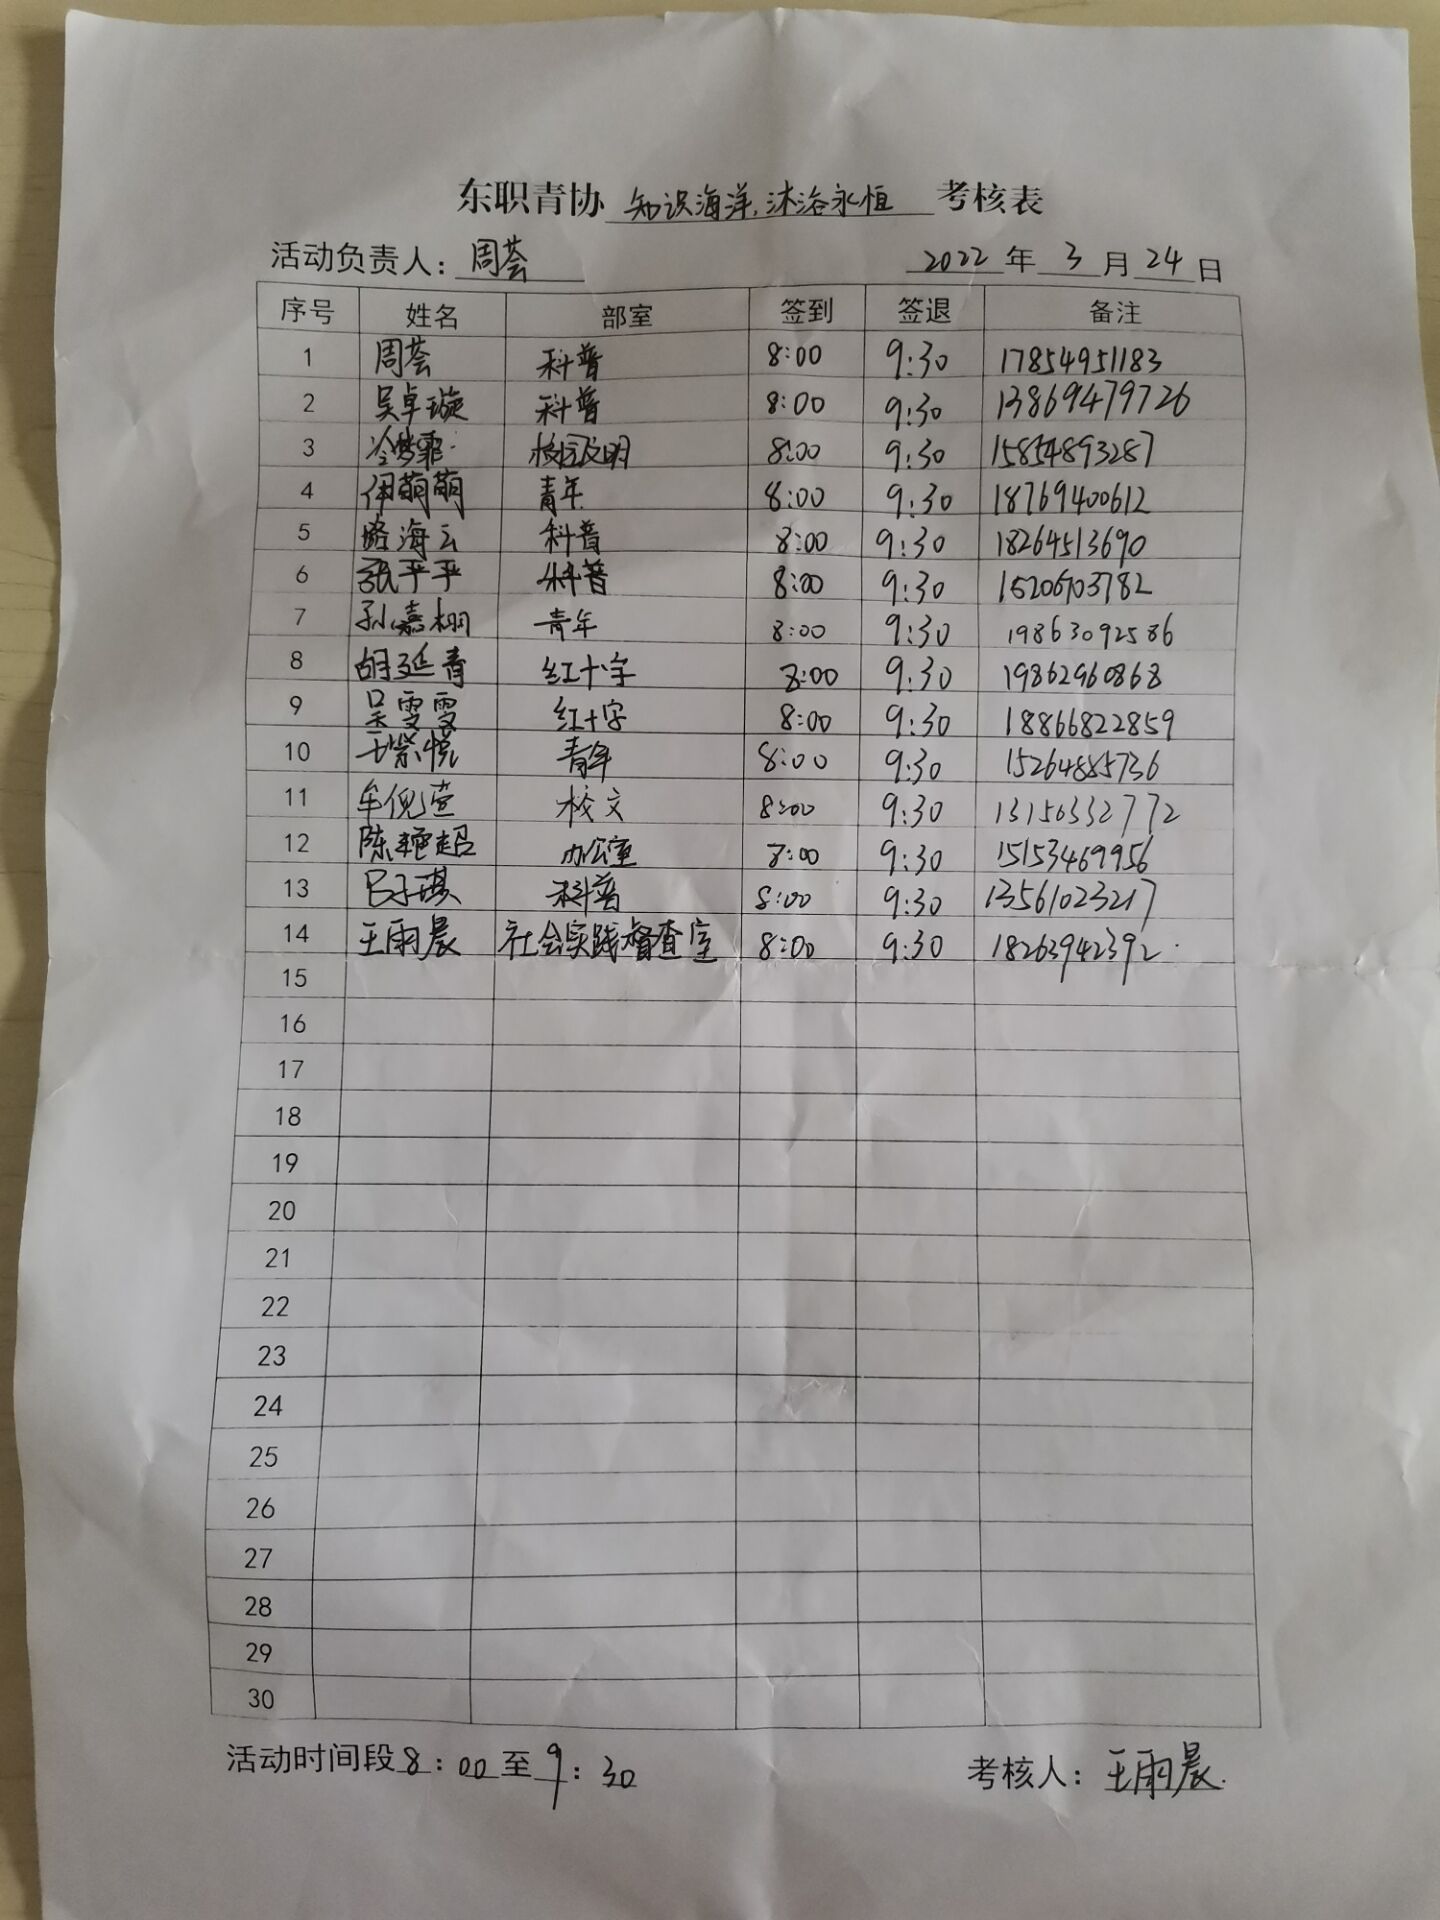 东职青协 知识海洋,沐浴永恒 考核表
活动负责人: 周荟 2022 年 3 月 24 日
序号 姓名 部室 签到 签退 备注
1 周荟 科普 8:00 9:30 17854951183
2 吴卓璇 科普 8:00 9:30 13869479726
3 冷梦霏 校园文明 8:00 9:30 15854893287
4 伊萌萌 青年 8:00 9:30 18769400612
5 路海云 科普 8:00 9:30 18264513690
6 张平平 科普 8:00 9:30 15206903782
7 孙嘉栩 青年 8:00 9:30 19863092586
8 胡延青 红十字 8:00 9:30 19862960868
9 吴雯雯 红十字 8:00 9:30 18866822859
10 紫悦 青年 8:00 9:30 15264885736
11 牟倪萱 校文 8:00 9:30 13156332772
12 陈艳超 办公室 8:00 9:30 15153469956
13 吕子琪 科普 8:00 9:30 13561023217
14 王雨晨 社会实践督查室 8:00 9:30 18263942392
15
16
17
18
19
20
21
22
23
24
25
26
27
28
29
30
活动时间段 8:00 至 9:30 考核人: 王雨晨